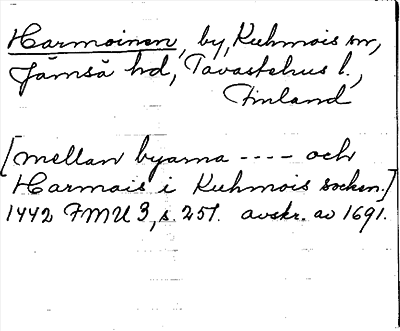 Harmoinen, by, Kuhmois sn,
Jämsä hd, Tavastehus l.,
Finland
[mellan byarna ---- och
Harmais i Kuhmois socken.]
1442 FMU 3, s. 251. avskr. av 1691.